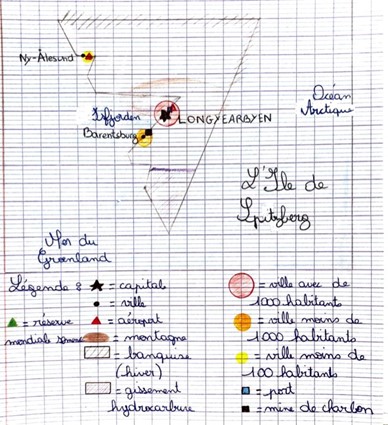 Ny-Ålesund
Océan
Arctique
Isfjorden
LONGYEARBYEN
Barentsburg
L'Ile de
Spitzberg
Mer du
Groenland
Légende :
= capitale
= ville
= réserve
mondiale
= aéroport
= montagne
= banquise
(hiver)
= gissement
hydrocarbure
= ville avec de
1000 habitants
= ville moins de
1000 habitants
= ville moins de
100 habitants
= port
= mine de charbon